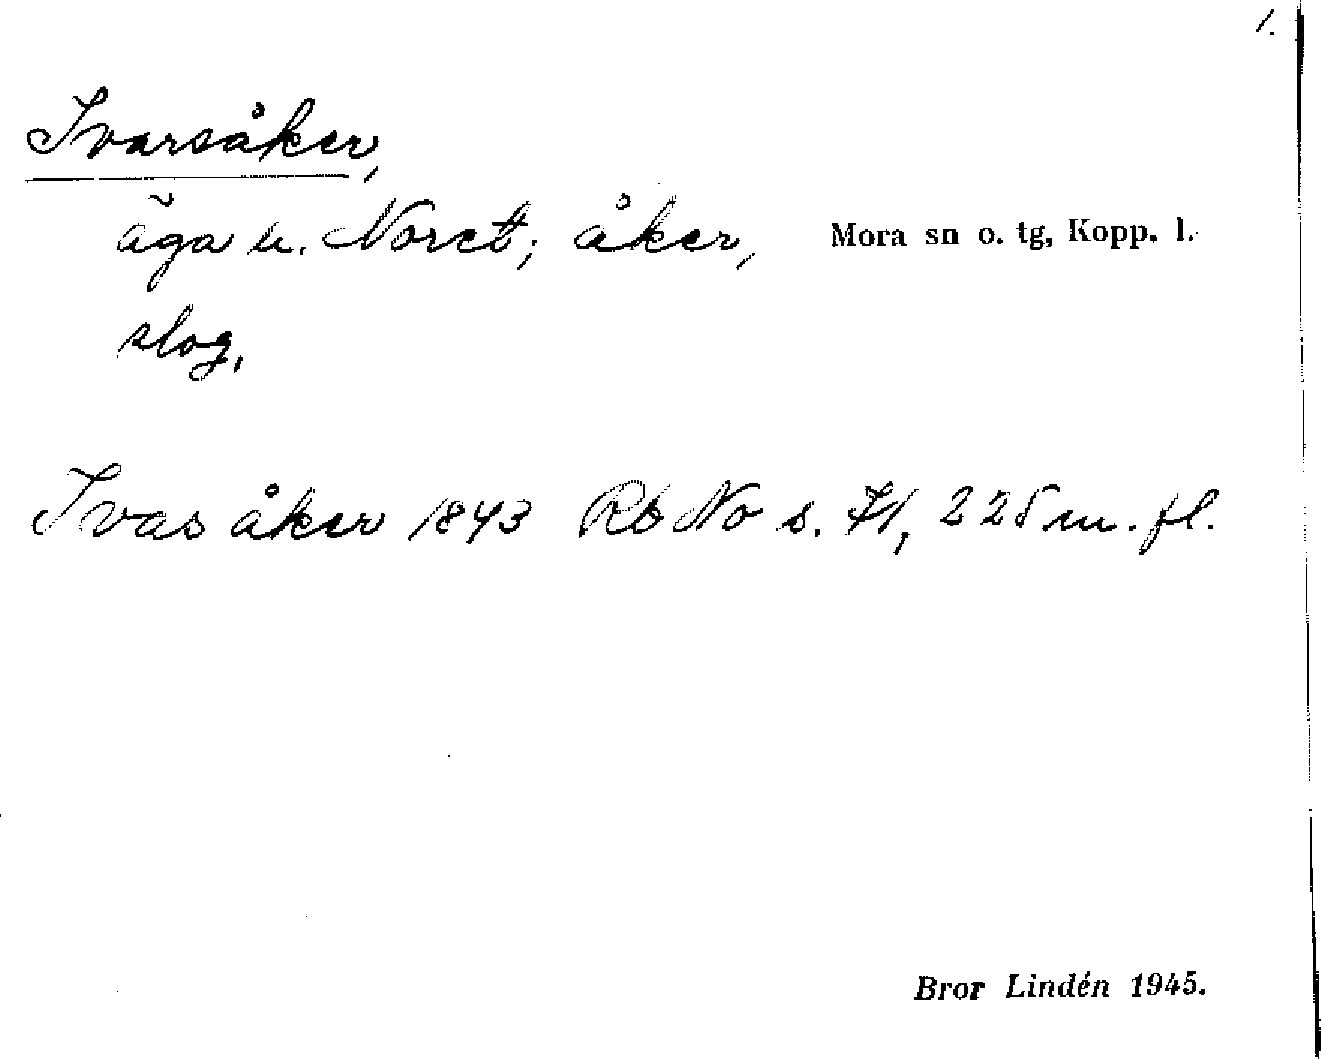 1.
Ivarsåker,
äga u. Noret; åker, Mora sn o. tg, Kopp. l.
slog,
Ivas åker 1843 Rb No s. 71, 225 m. fl.
Bror Lindén 1945.